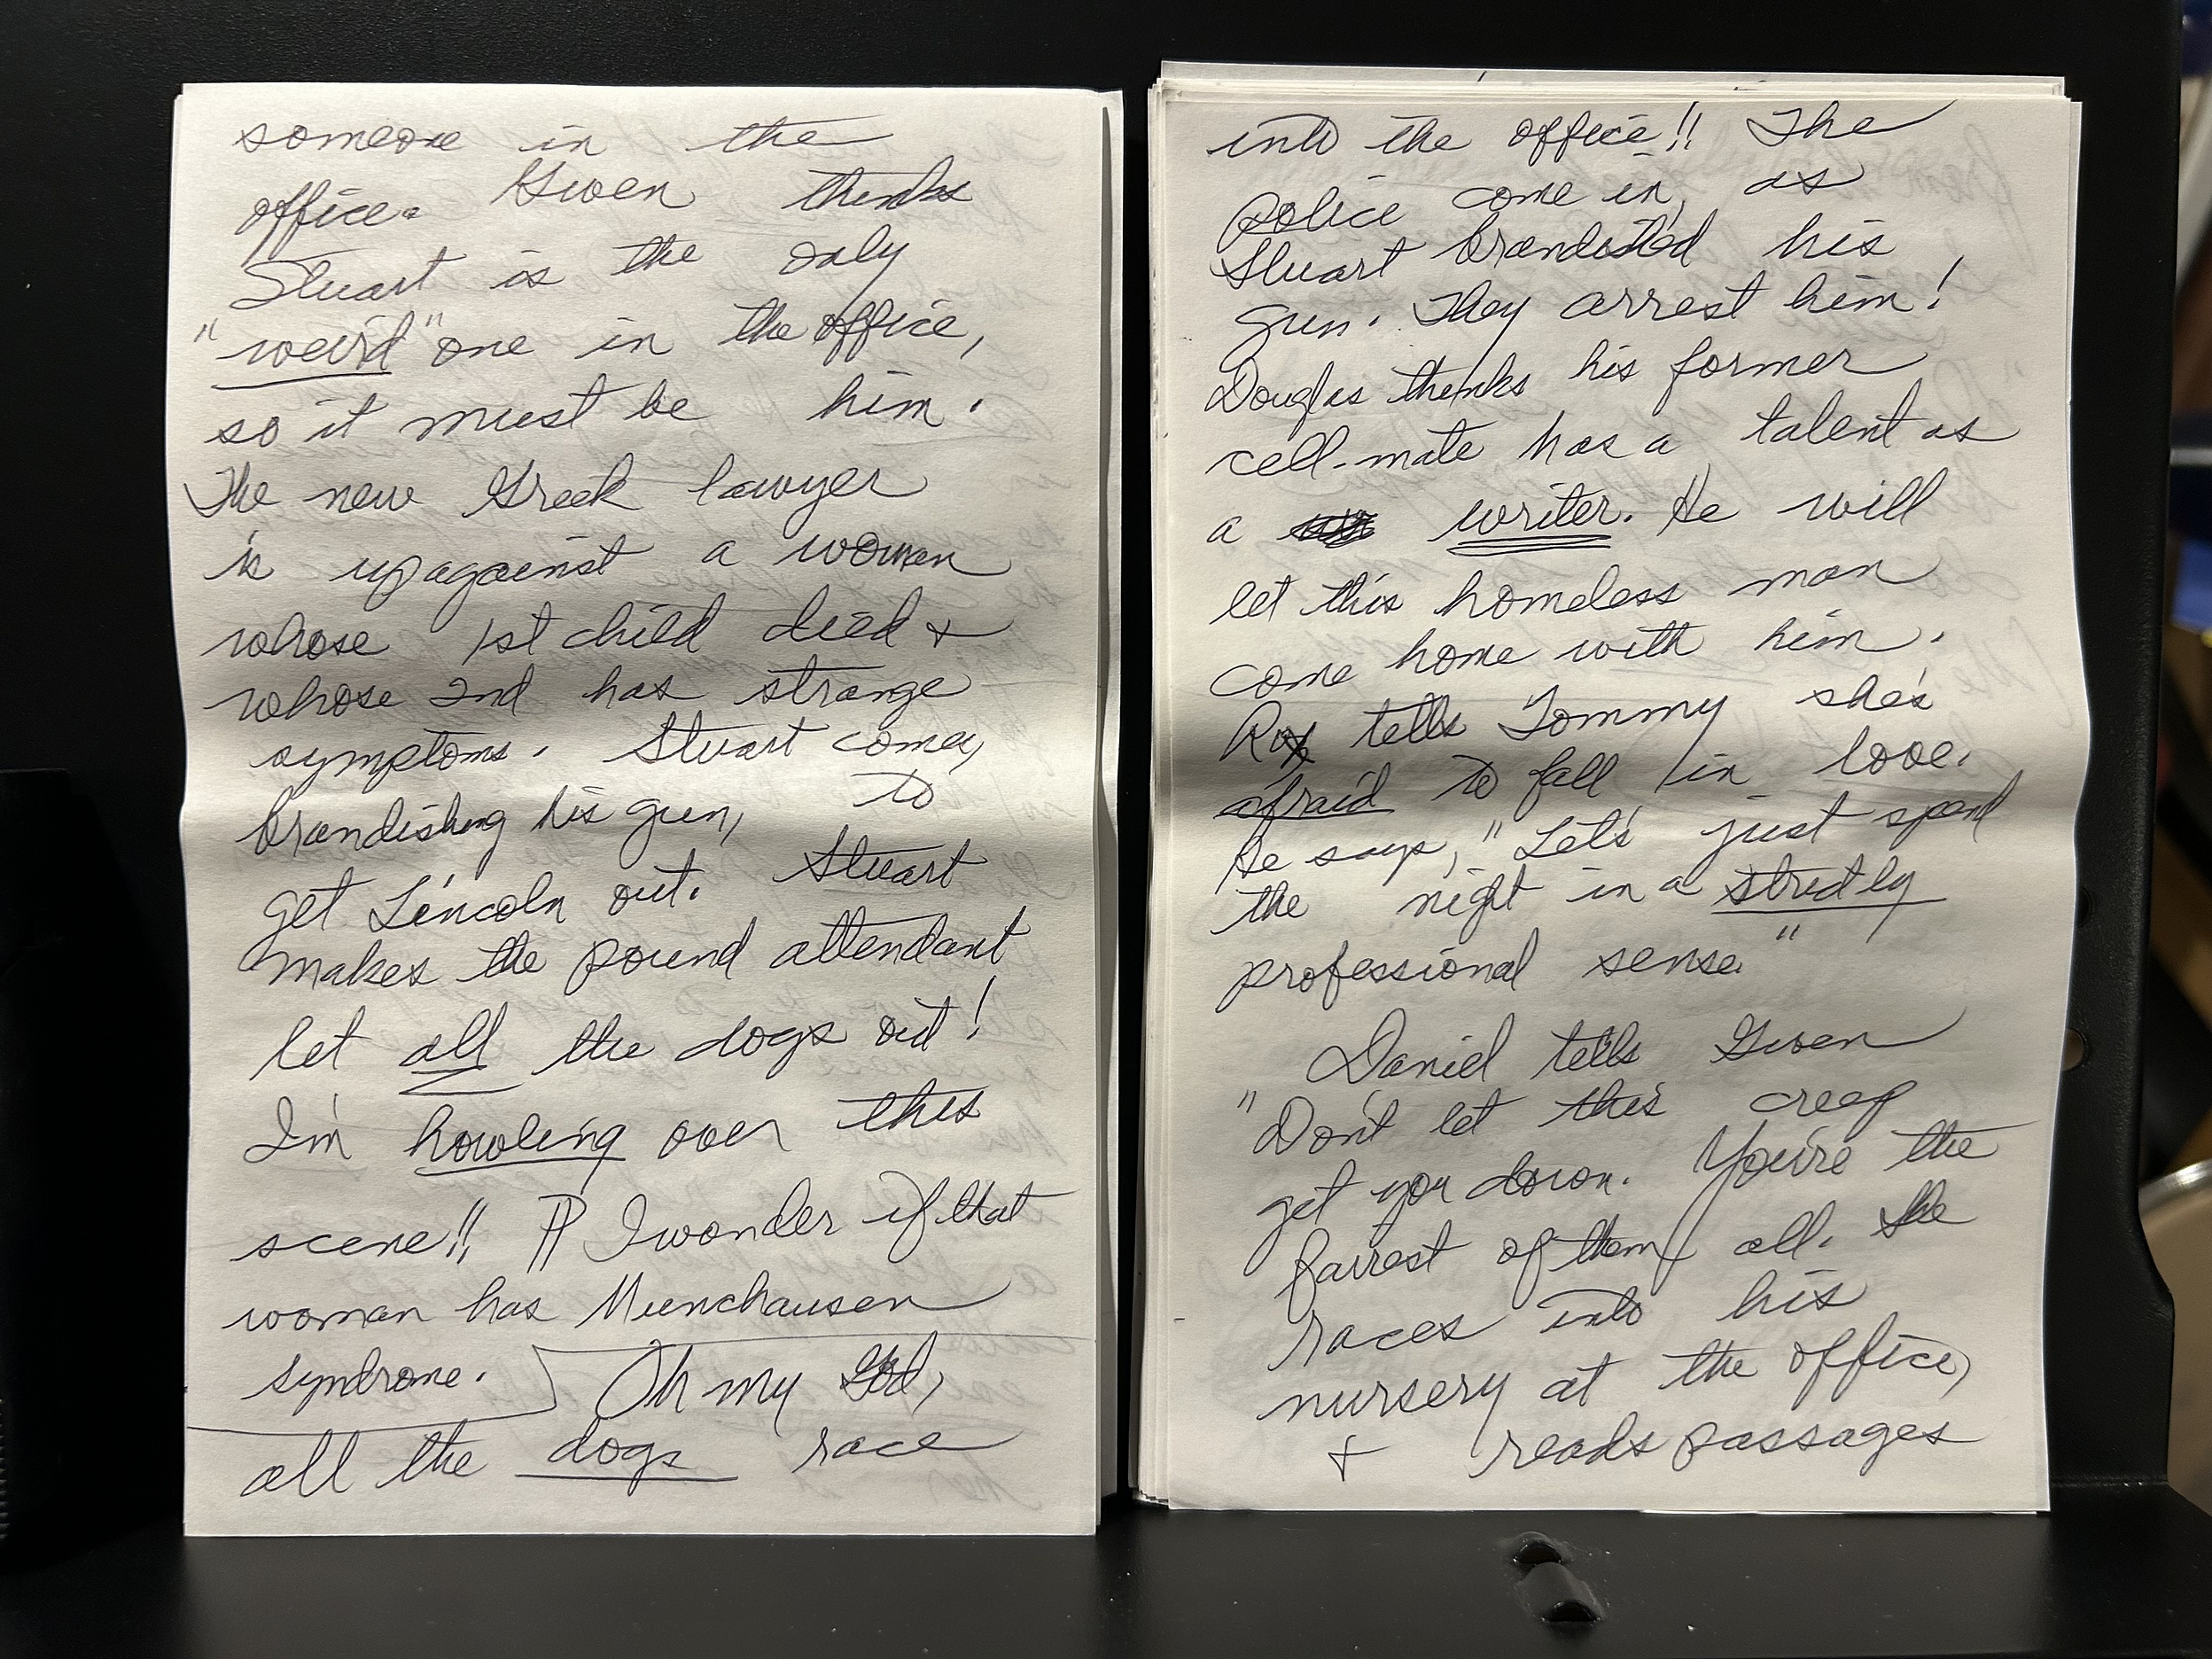 someone in the
office. Gwen thinks
Stuart is the only
"weird" one in the office,
so it must be him.
The new Greek lawyer
is up against a woman
whose 1st child died +
whose 2nd has strange
symptoms. Stuart comes,
brandishing his gun, to
get Lincoln out. Stuart
makes the pound attendant
let all the dogs out!
I'm howling over this
scene!! ¶ I wonder if that
woman has Muenchausen
syndrome. Oh my God,
all the dogs race
into the office!! The
police come in, as
Stuart brandished his
gun. They arrest him!
Douglas thinks his former
cell-mate has a talent as
a writer. He will
let this homeless man
come home with him.
Rox tells Tommy she's
afraid to fall in love.
He says, "Let's just spend
the night in a strictly
professional sense."
Daniel tells Gwen
"Don't let this creep
get you down. You're the
fairest of them all. She
races into his
nursery at the office,
+ reads passages